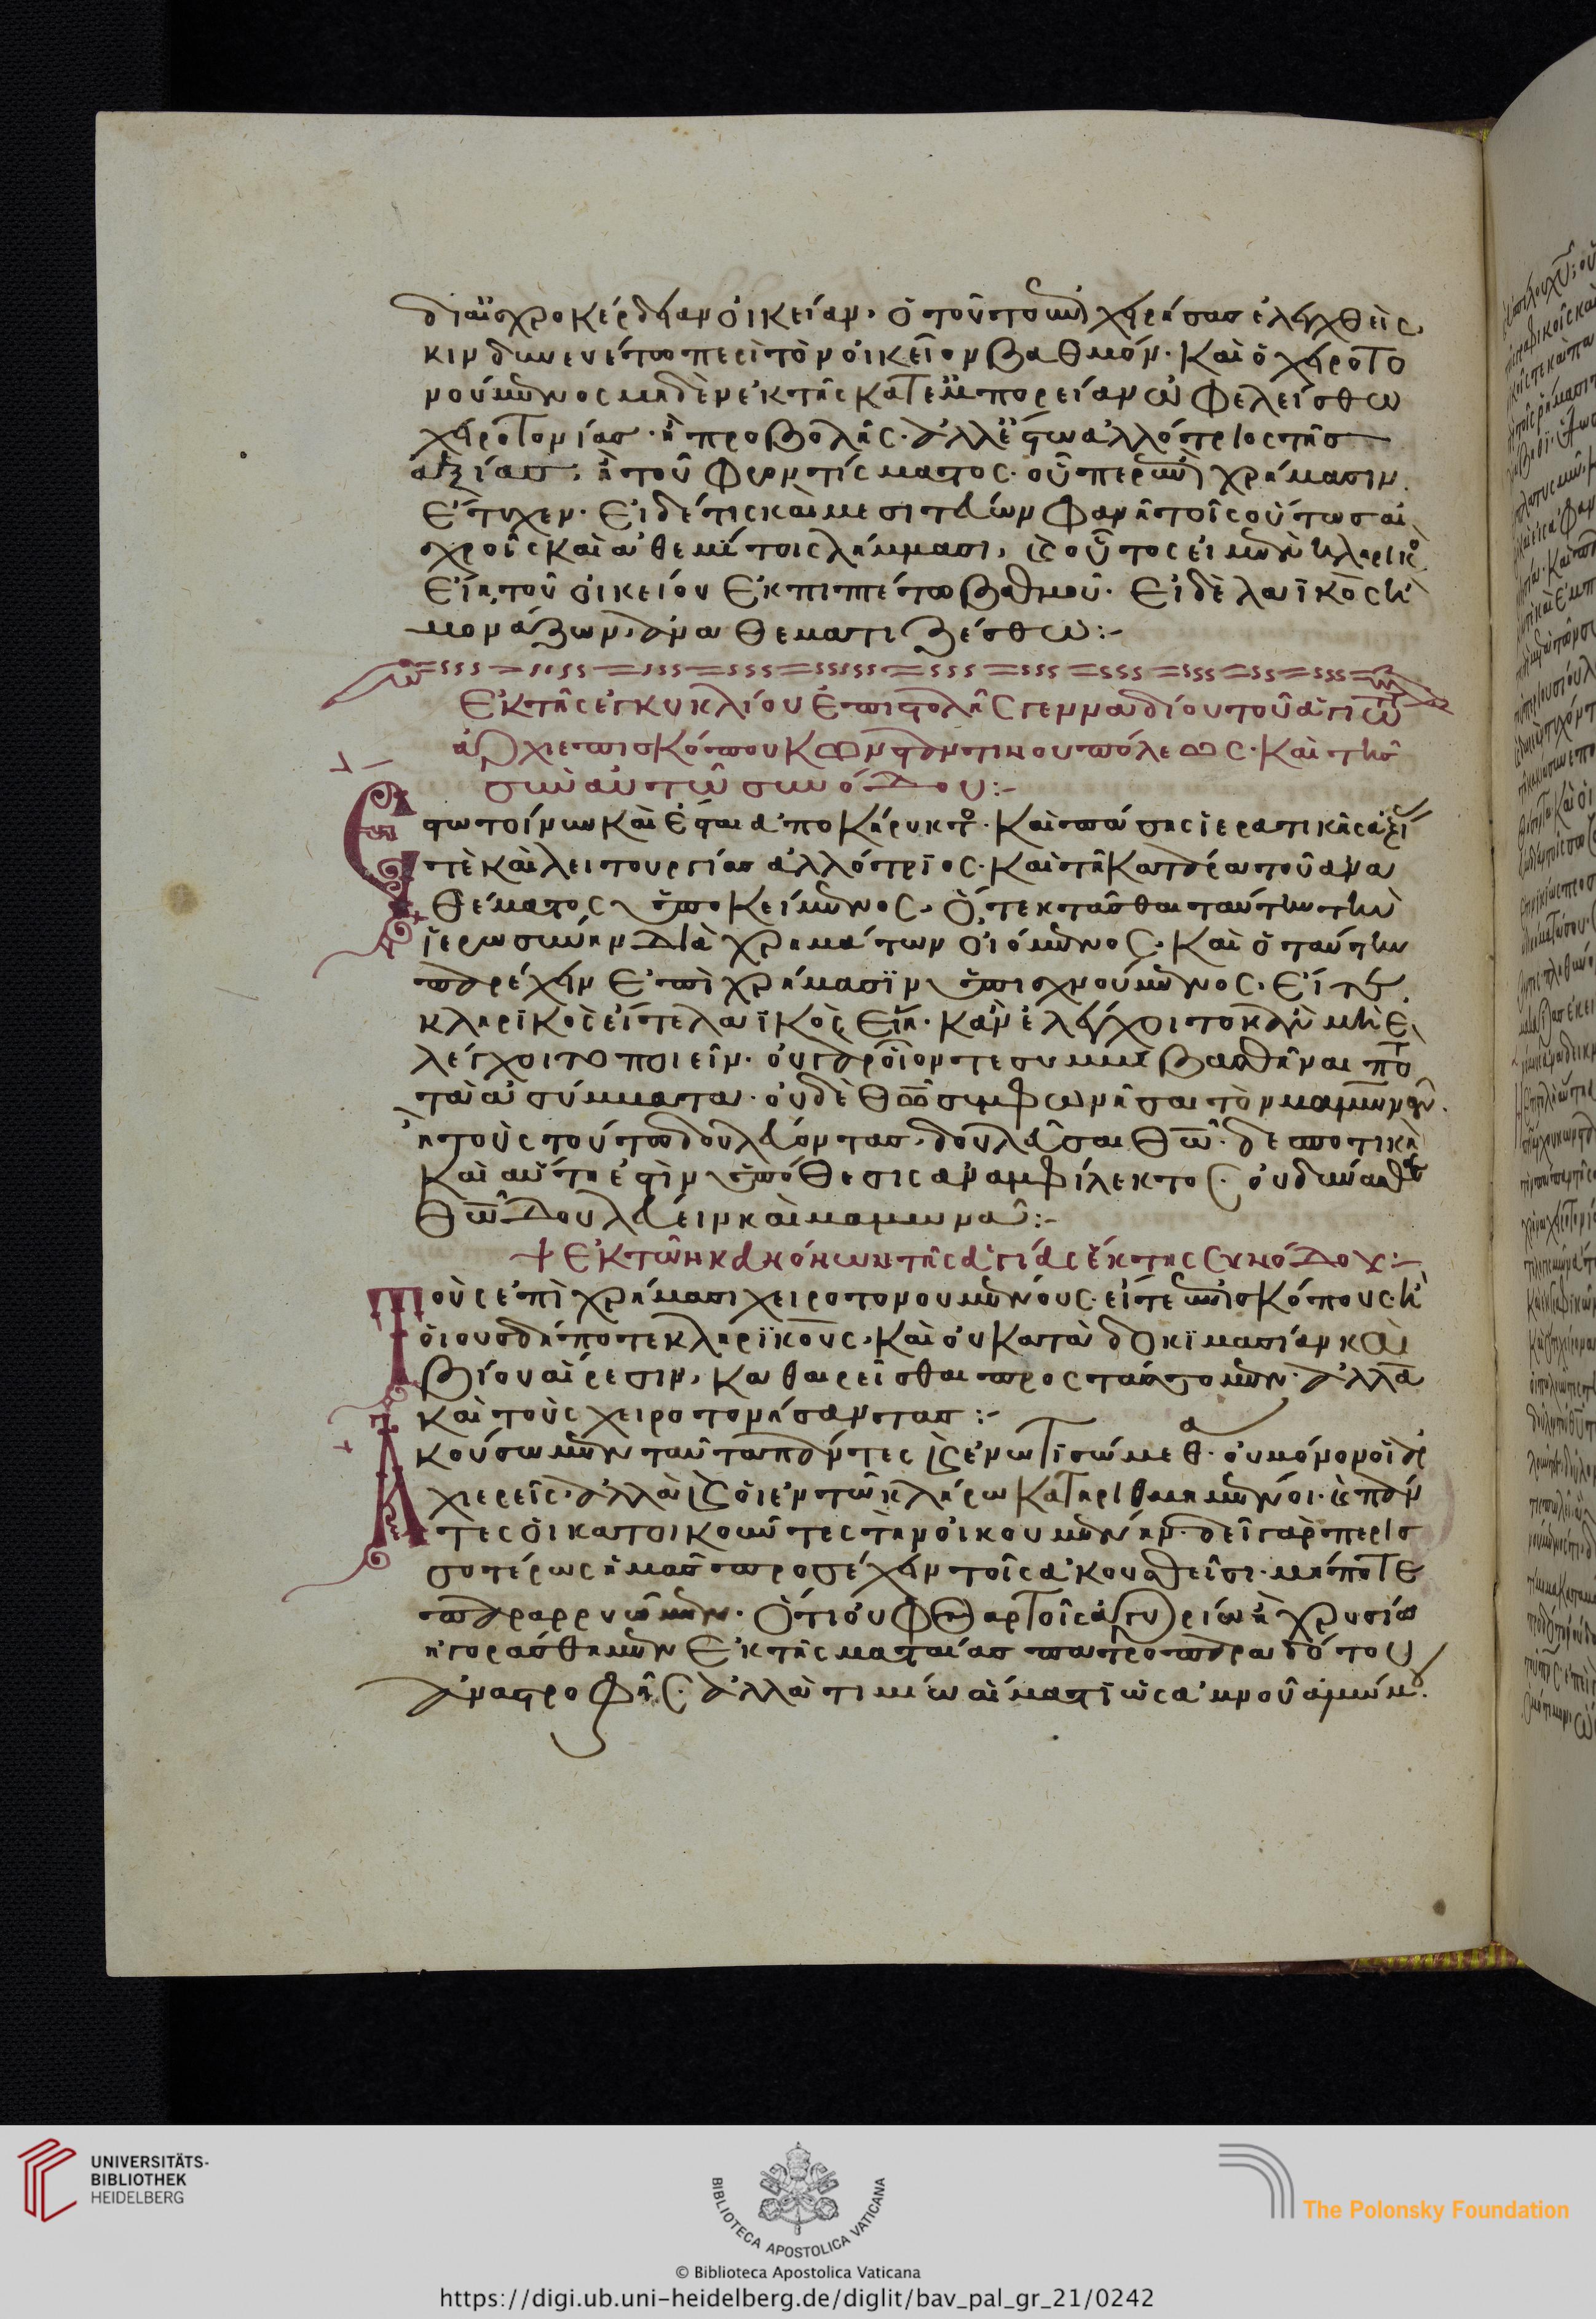 δι αἰσχροκέρδειαν οἰκείαν· ὁ τοῦτο ἐπιχειρήσας ἐλεγχθεὶς,
κινδυνευέτω περὶ τὸν οἰκεῖον βαθμόν· καὶ ὁ χειροτο
νούμενος μηδὲν ἐκ τῆς κατεμπορείαν ὠφελείσθω
χειροτονίας· ἢ προβολῆς· ἀλλ ἔστω ἀλλότριος τῆς
ἀξίας, ἢ τοῦ φροντίσματος· οὗπερ ἐπὶ χρήμασιν
ἔτυχεν· εἰ δέ τις καὶ μεσιτεύων φανῇ τοῖς οὕτως αἰ
σχροῖς καὶ ἀθεμίτοις λήμμασι, καὶ οὗτος εἰ μὲν κληρικὸς
εἴη, τοῦ οἰκείου ἐκπιπτέτω βαθμοῦ· εἰ δὲ λαϊκὸς ἢ
μονάζων, ἀναθεματιζέσθω:-
Ἐκ τῆς ἐγκυκλίου ἐπιστολῆς γενναδίου τοῦ ἁγιω
ἀρχιεπισκόπου Κωνσταντινουπόλεως· καὶ τῆς
σὺν αὐτῷ συνόδου:-
Ἔστω τοίνυν καὶ ἔσται ἀποκήρυκτος· καὶ πάσης ἱερατικῆς ἀξί
τε καὶ λειτουργίας ἀλλότριος· καὶ τῇ κατάρα τοῦ ἀνα
θέματος ὑποκείμενος· ὅ, τε κτᾶσθαι ταύτην τὴν
ἱερωσύνην διὰ χρημάτων οἰόμενος· καὶ ὁ ταύτην
παρέχειν ἐπὶ χρήμασιν ὑπισχνούμενος· εἴτε
κληρικὸς εἴτε λαϊκὸς εἴη· κἀν ἐλέγχοιτο κἀν μὴ ἐ
λέγχοιτο ποιεῖν· οὐ γὰρ οἷόν τε συμβιβασθῆναι
τὰ ἀσύμματα· οὐδὲ θῶ συμφωνῆσαι τὸν μαμωνᾶν·
ἢ τοὺς τούτω δουλεύοντας, δουλεῦσαι θῶ· δεσποτικὴ
καὶ αὕτη ἐστὶν ὑπόθεσις ἀναμφίλεκτος· οὐ δύνασθε
θῶ δουλεύειν καὶ μαμωνᾶ:-
+ Ἐκ τῶν κανόνων τῆς ἁγίας ἕκτης συνόδου:-
Τοὺς ἐπὶ χρήμασι χειροτονουμένους· εἴτε ἐπισκόπους· ἢ
οἱουσδήποτε κληρικοὺς· καὶ οὐ κατὰ δοκιμασίαν καὶ
βίου αἵρεσιν, καθαιρεῖσθαι προςτάττομεν· ἀλλὰ
καὶ τοὺς χειροτονήσαντας:-
Ἀκούσωμεν ταῦτα πάντες καὶ ἐνωτισώμεθα· οὐ μόνον οἱ ἀρ
χιερεῖς· ἀλλὰ καὶ οἱ ἐν τῶ κλήρω κατηριθμημένοι· καὶ πάν
τες οἱ κατοικοῦντες τὴν οἰκουμένην· δεῖ γὰρ περισ
σοτέρως ἡμᾶς προσέχειν τοῖς ἀκουσθεῖσι· μήποτε
παραρρυῶμεν· ὅτι οὐ φθαρτοῖς ἀργυρίω ἢ χρυσίω
ἠγοράσθημεν ἐκ τῆς ματαίας πατροπαραδότου
ἀναστροφῆς· ἀλλὰ τιμίω αἵματι ὡς ἀμνοῦ ἀμώμου.
UNIVERSITÄTS-
BIBLIOTHEK
HEIDELBERG
BIBLIOTECA APOSTOLICA VATICANA
The Polonsky Foundation
© Biblioteca Apostolica Vaticana
https://digi.ub.uni-heidelberg.de/diglit/bav_pal_gr_21/0242